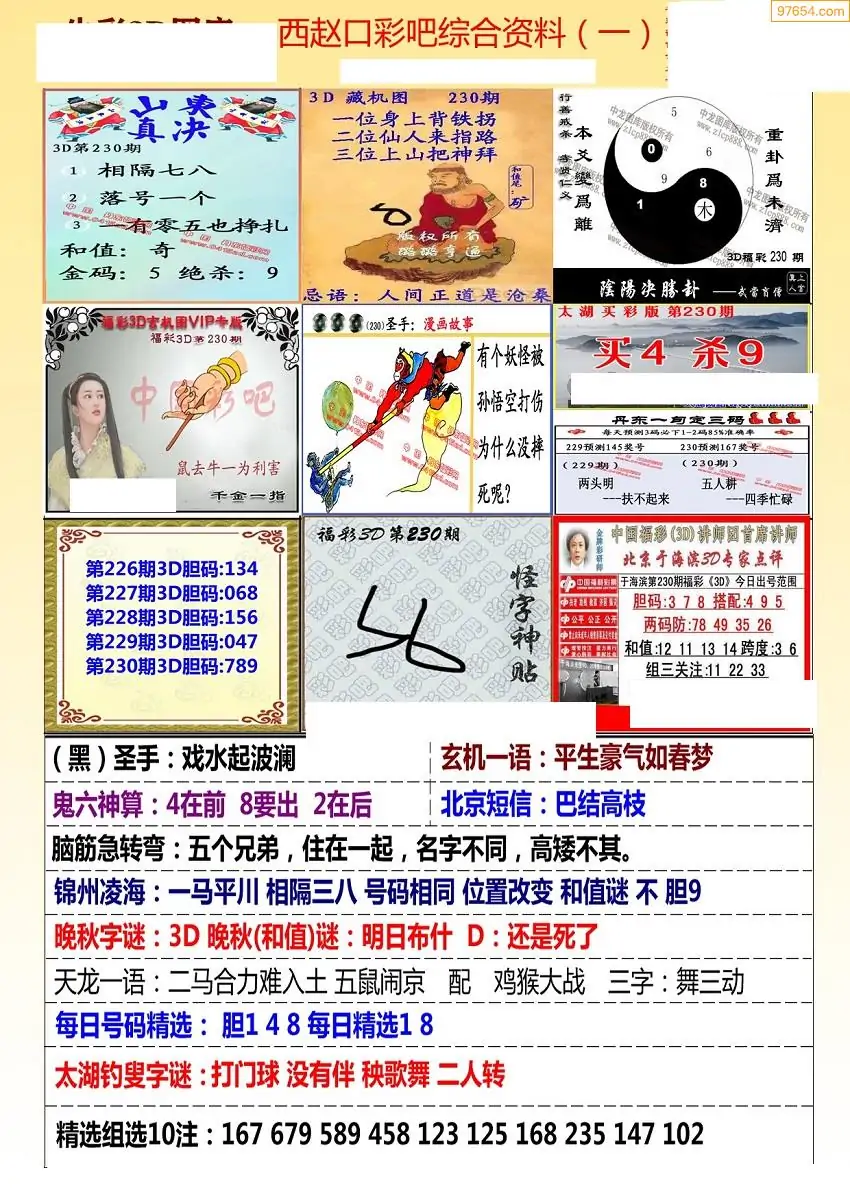 97654.com
西赵口彩吧综合资料（一）
山夷
真决
3D第230期
1 相隔七八
2 落号一个
3 一有零五也挣扎
和值：奇
金码：5 绝杀：9
3D 藏机图 230期
一位身上背铁拐
二位仙人来指路
三位上山把神拜
和值尾：矿
版权所有
忌语：人间正道是沧桑
行善戒杀
本爻變爲離
重卦爲未濟
5
0
6
9
8
1
木
3D福彩 230 期
陰陽決勝卦 ——武當肯僧
福彩3D玄机图VIP专版
福彩3D第230期
中国彩吧
鼠去牛一为利害
千金一指
(230)圣手：漫画故事
有个妖怪被
孙悟空打伤
为什么没摔
死呢?
太湖买彩版 第230期
买4 杀9
丹东一句定三码
每天预测3码必下1-2码85%准确率
229预测145奖号 230预测167奖号
(229期) (230期)
两头明 五人耕
---扶不起来 ---四季忙碌
第226期3D胆码:134
第227期3D胆码:068
第228期3D胆码:156
第229期3D胆码:047
第230期3D胆码:789
福彩3D第230期
怪字神贴
中国福彩(3D)讲师团首席讲师
金牌彩研师
北京于海滨3D专家点评
中国福利彩票
于海滨第230期福彩《3D》今日出号范围
胆码:3 7 8 搭配:4 9 5
两码防:78 49 35 26
和值:12 11 13 14 跨度:3 6
组三关注:11 22 33
公平 公正 公开
（黑）圣手：戏水起波澜
玄机一语：平生豪气如春梦
鬼六神算：4在前 8要出 2在后
北京短信：巴结高枝
脑筋急转弯：五个兄弟，住在一起，名字不同，高矮不其。
锦州凌海：一马平川 相隔三八 号码相同 位置改变 和值谜 不 胆9
晚秋字谜：3D 晚秋(和值)谜：明日布什 D：还是死了
天龙一语：二马合力难入土 五鼠闹京 配 鸡猴大战 三字：舞三动
每日号码精选： 胆1 4 8 每日精选1 8
太湖钓叟字谜：打门球 没有伴 秧歌舞 二人转
精选组选10注：167 679 589 458 123 125 168 235 147 102